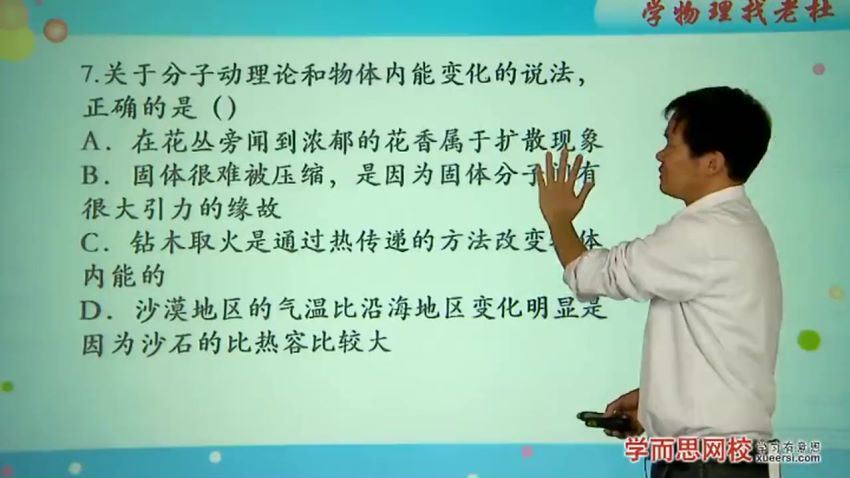 学物理找老杜
7.关于分子动理论和物体内能变化的说法，
正确的是（）
A．在花丛旁闻到浓郁的花香属于扩散现象
B．固体很难被压缩，是因为固体分子 有
很大引力的缘故
C．钻木取火是通过热传递的方法改变 体
内能的
D．沙漠地区的气温比沿海地区变化明显是
因为沙石的比热容比较大
学而思网校 学习有意思
xueersi.com